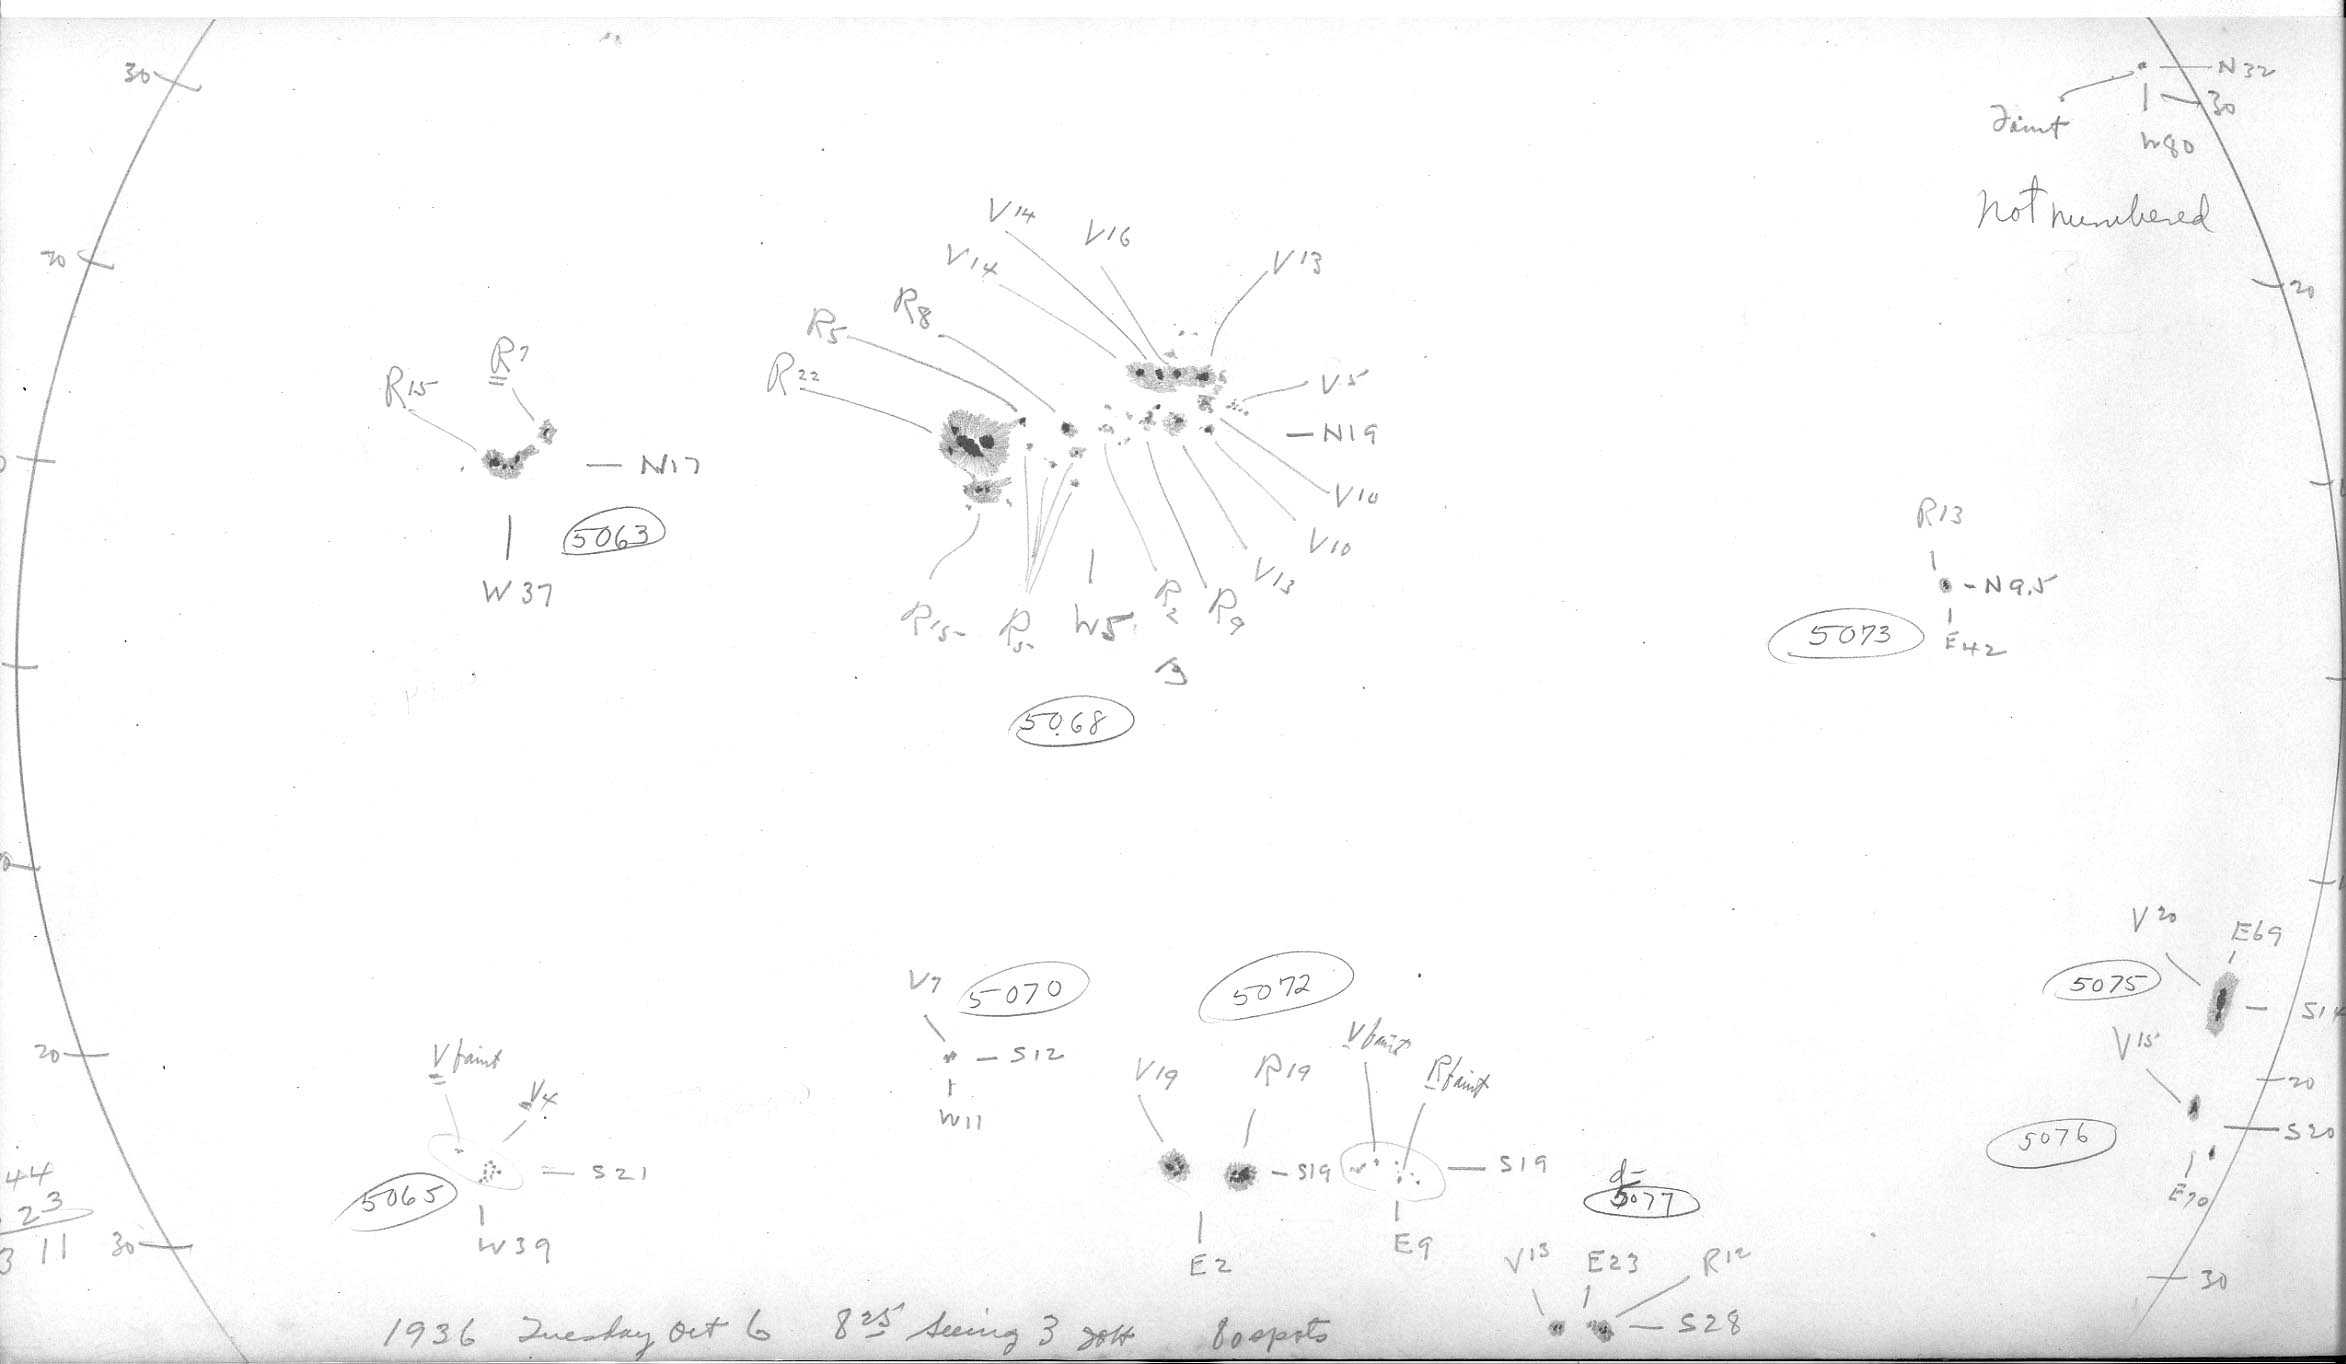 30
N32
30
Faint
W80
Not numbered
V14
V16
V14
V13
20
20
R8
R5
R22
R7
R15
V5
N19
N17
V10
R13
5063
V10
N9.5
W37
V13
R15
R5
W5
R2
R9
5073
E42
5068
V20
E69
V7
5070
5072
5075
S14
V faint
V15
20
V faint
S12
V19
R19
R faint
20
V4
W11
5076
S20
44
23
S21
S19
S19
5065
d-
5077
E70
3 11
30
W39
E2
E9
V13
E23
R12
30
S28
1936 Tuesday Oct 6 8 25 Seeing 3 80 spots